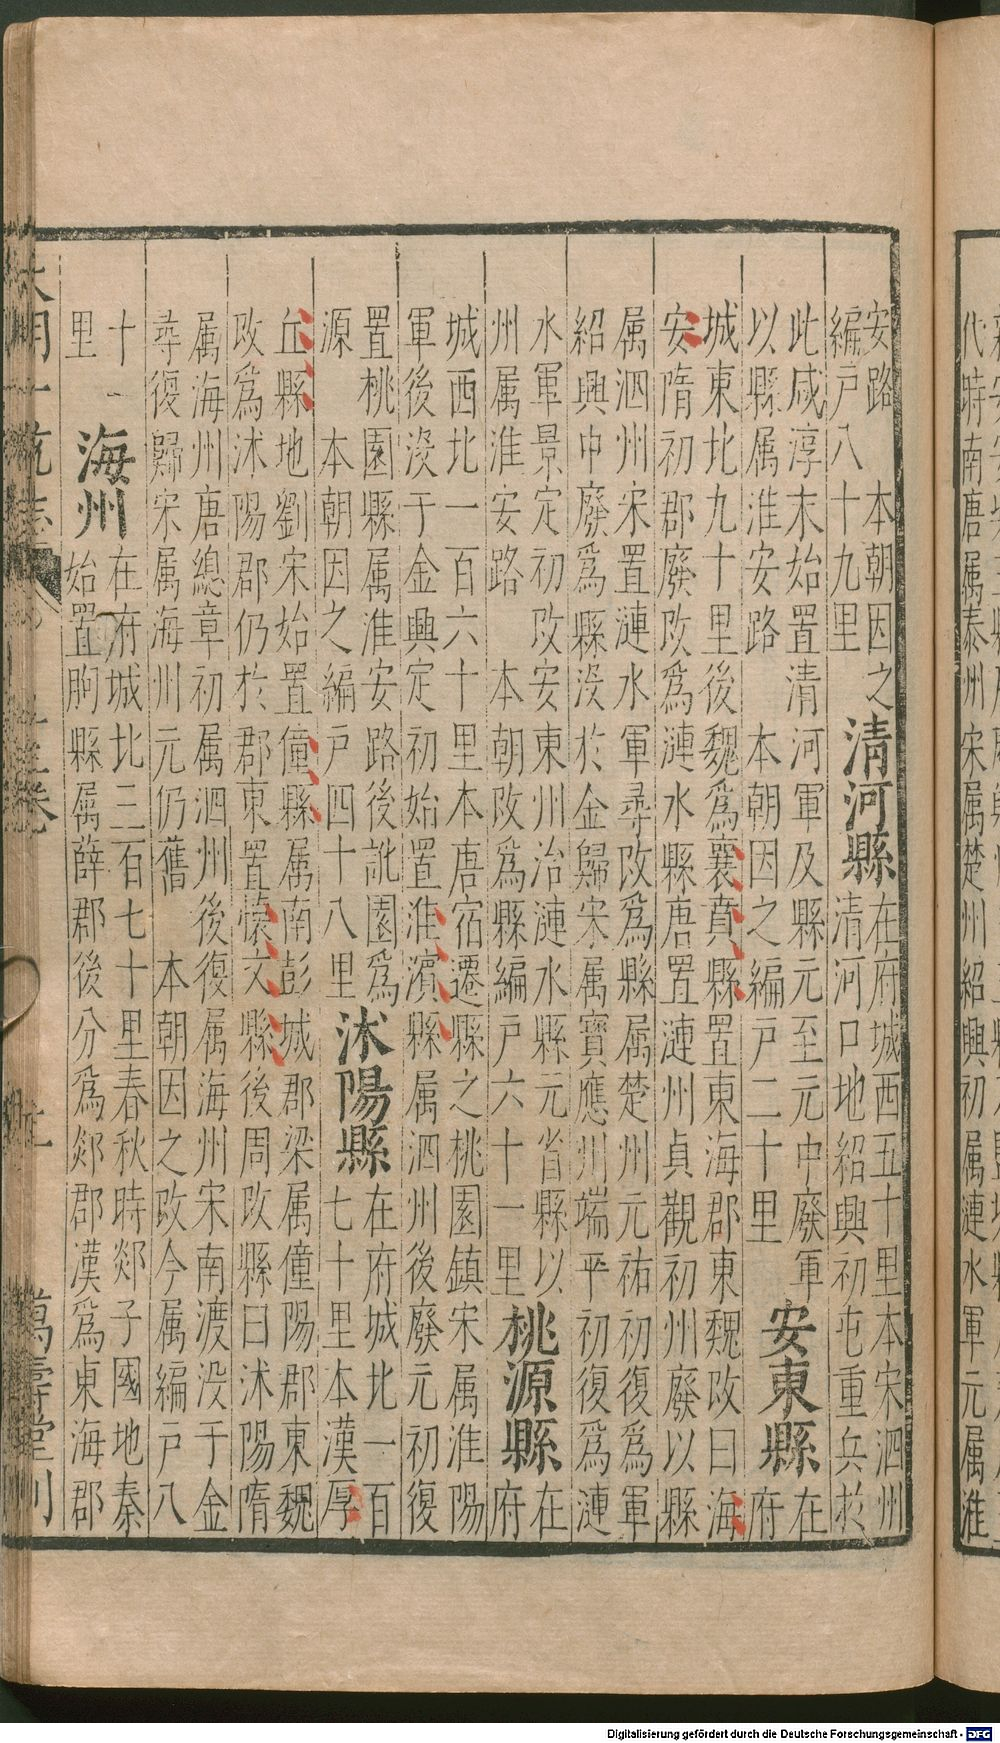 代時南唐属泰州宋属楚州紹興初属漣水軍元属淮
安路　本朝因之
編戶八十九里
清河縣
在府城西五十里本宋泗州
清河口地紹興初屯重兵於
此咸淳末始置清河軍及縣元至元中廢軍
以縣属淮安路　本朝因之編戶二十里
安東縣
在
府
城東北九十里後魏爲襄賁縣置東海郡東魏改曰海
安隋初郡廢改爲漣水縣唐置漣州貞觀初州廢以縣
属泗州宋置漣水軍尋改爲縣属楚州元祐初復爲軍
紹興中廢爲縣沒於金歸宋属寶應州端平初復爲漣
水軍景定初改安東州治漣水縣元省縣以
州属淮安路　本朝改爲縣編戶六十一里
桃源縣
在
府
城西北一百六十里本唐宿遷縣之桃園鎮宋属淮陽
軍後沒于金興定初始置淮濱縣属泗州後廢元初復
置桃園縣属淮安路後訛園爲
源　本朝因之編戶四十八里
沭陽縣
在府城北一百
七十里本漢厚
丘縣地劉宋始置僮縣属南彭城郡梁属僮陽郡東魏
改爲沭陽郡仍於郡東置懷文縣後周改縣曰沭陽隋
属海州唐總章初属泗州後復属海州宋南渡没于金
尋復歸宋属海州元仍舊　本朝因之改今属編戶八
十一
里
海州
在府城北三百七十里春秋時郯子國地秦
始置朐縣属薛郡後分爲郯郡漢爲東海郡
大明一統志
萬壽堂刊
Digitalisierung gefördert durch die Deutsche Forschungsgemeinschaft - DFG